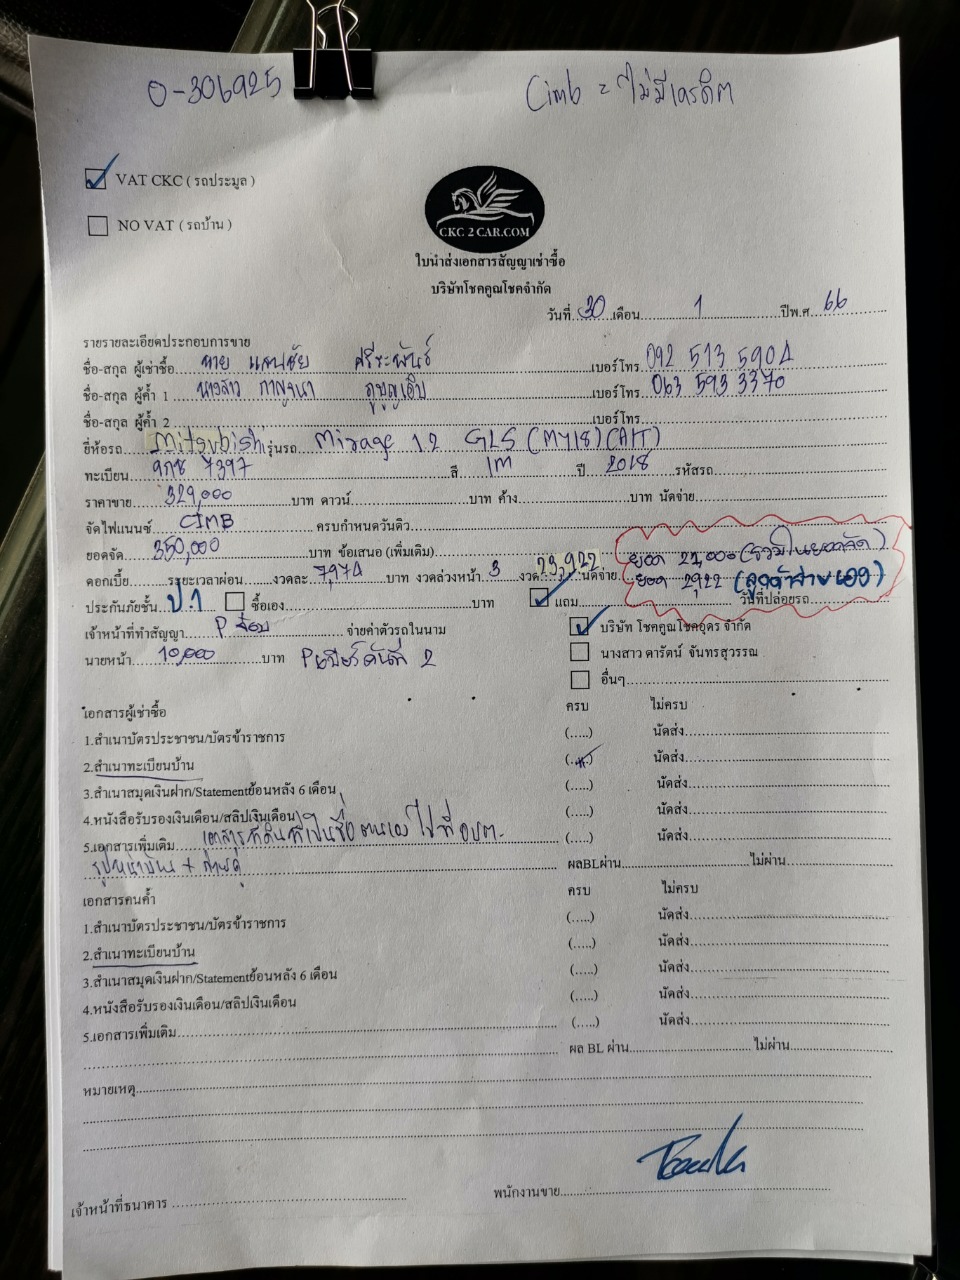 0-306925
Cimb = ไม่มีเครดิต
VAT CKC ( รถประมูล )
NO VAT ( รถบ้าน )
CKC 2 CAR.COM
ใบนำส่งเอกสารสัญญาเช่าซื้อ
บริษัทโชคคูณโชคจำกัด
วันที่ 30 เดือน 1 ปีพ.ศ. 66
รายรายละเอียดประกอบการขาย
ชื่อ-สกุล ผู้เช่าซื้อ นาย แสนชัย ศรีระพันธ์ เบอร์โทร 092 513 5904
ชื่อ-สกุล ผู้ค้ำ 1 นางสาว กาญจนา เบอร์โทร 063 593 3370
ชื่อ-สกุล ผู้ค้ำ 2 เบอร์โทร
ยี่ห้อรถ Mitsubishi รุ่นรถ Mirage 1.2 GLS (MY18) (A/T)
ทะเบียน 7397 สี เทา ปี 2018 รหัสรถ
ราคาขาย 329,000 บาท ดาวน์ บาท ค้าง บาท นัดจ่าย
จัดไฟแนนซ์ CIMB ครบกำหนดวันคิว
ยอดจัด 350,000 บาท ข้อเสนอ (เพิ่มเติม)
ยอด 21,000 (รวมในยอดจัด)
ดอกเบี้ย ระยะเวลาผ่อน งวดละ 7,974 บาท งวดล่วงหน้า 3 งวด 23,922 นัดจ่าย
ยอด 2,922 (ลูกค้าจ่ายเอง)
ประกันภัยชั้น ป.1 ซื้อเอง บาท แถม วันที่ปล่อยรถ
เจ้าหน้าที่ทำสัญญา P จ๊อบ จ่ายค่าตัวรถในนาม บริษัท โชคคูณโชคอุดร จำกัด
นายหน้า 10,000 บาท คันที่ 2 นางสาว ดารัตน์ จันทรสุวรรณ
อื่นๆ
เอกสารผู้เช่าซื้อ ครบ ไม่ครบ
1.สำเนาบัตรประชาชน/บัตรข้าราชการ (.....) นัดส่ง
2.สำเนาทะเบียนบ้าน (.....) นัดส่ง
3.สำเนาสมุดเงินฝาก/Statementย้อนหลัง 6 เดือน (.....) นัดส่ง
4.หนังสือรับรองเงินเดือน/สลิปเงินเดือน (.....) นัดส่ง
5.เอกสารเพิ่มเติม เอกสารที่ดินที่เป็นชื่อตนเอง ไปที่ อบต. (.....) นัดส่ง
รูปหน้าบ้าน + ถ่ายคู่ ผลBLผ่าน ไม่ผ่าน
เอกสารคนค้ำ ครบ ไม่ครบ
1.สำเนาบัตรประชาชน/บัตรข้าราชการ (.....) นัดส่ง
2.สำเนาทะเบียนบ้าน (.....) นัดส่ง
3.สำเนาสมุดเงินฝาก/Statementย้อนหลัง 6 เดือน (.....) นัดส่ง
4.หนังสือรับรองเงินเดือน/สลิปเงินเดือน (.....) นัดส่ง
5.เอกสารเพิ่มเติม (.....) นัดส่ง
ผล BL ผ่าน ไม่ผ่าน
หมายเหตุ
เจ้าหน้าที่ธนาคาร พนักงานขาย